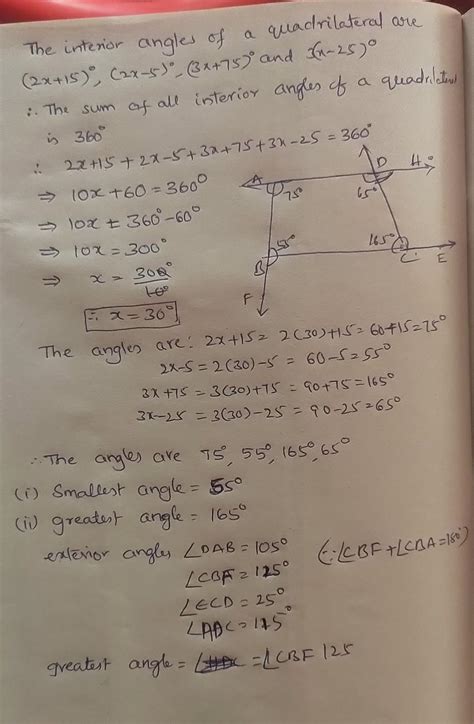 The interior angles of a quadrilateral are
(2x+15)°, (2x-5)°, (3x+75)° and 3(x-25)°
∴ The sum of all interior angles of a quadrilateral
is 360°
∴ 2x+15+2x-5+3x+75+3x-25=360°
⇒ 10x+60=360°
⇒ 10x = 360°-60°
⇒ 10x=300°
⇒ x = 300°/10°
∴ x=30°
A 75° D 65° H
B 55° 165° C E
F
The angles are: 2x+15= 2(30)+15=60+15=75°
2x-5=2(30)-5 = 60-5=55°
3x+75=3(30)+75 = 90+75=165°
3x-25=3(30)-25=90-25=65°
∴ The angles are 75°, 55°, 165°, 65°
(i) Smallest angle = 55°
(ii) greatest angle = 165°
exterior angles ∠DAB=105° (∵∠CBF+∠CBA=180°)
∠CBF=125°
∠ECD=25°
∠ADC=115°
greatest angle = =∠CBF 125